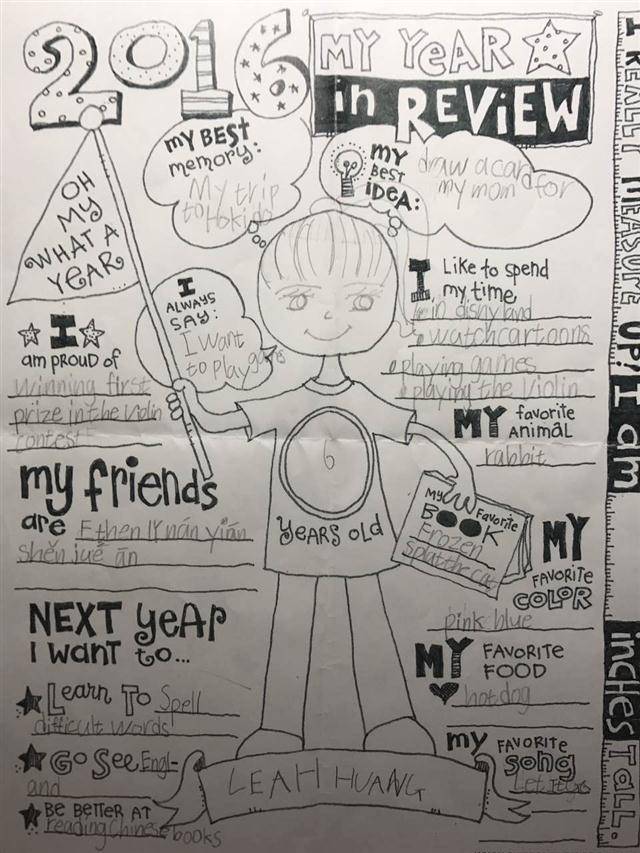 2016
MY YEAR
in REVIEW
OH
MY
WHAT A
YEAR
my BEST
memory:
My trip
to Hokido
MY
BEST
iDEA:
draw a card for
my mom
I
ALWAYS
SAY:
I want
to play games
I Like to spend
my time
in disnyland
watch cartoons
playing games
playing the violin
I
am PROUD of
winning first
prize in the violin
contest
MY favorite
ANiMAL
rabbit
my friends
are Ethen lǐ nán yián
shěn jué ān
6
YEARS OLD
My Favorite
BOOK
Frozen
Splat the cat
MY
FAVORITE
COLOR
pink blue
NEXT YEAR
I WANT to...
LEARN To Spell
difficult words
GO See Engl-
and
BE BETTER AT
reading Chinese books
MY FAVORITE
FOOD
hot dog
my FAVORITE
song
Let It Go
LEAH HUANG
I REALLY MEASURE UP! I am
inches TALL.